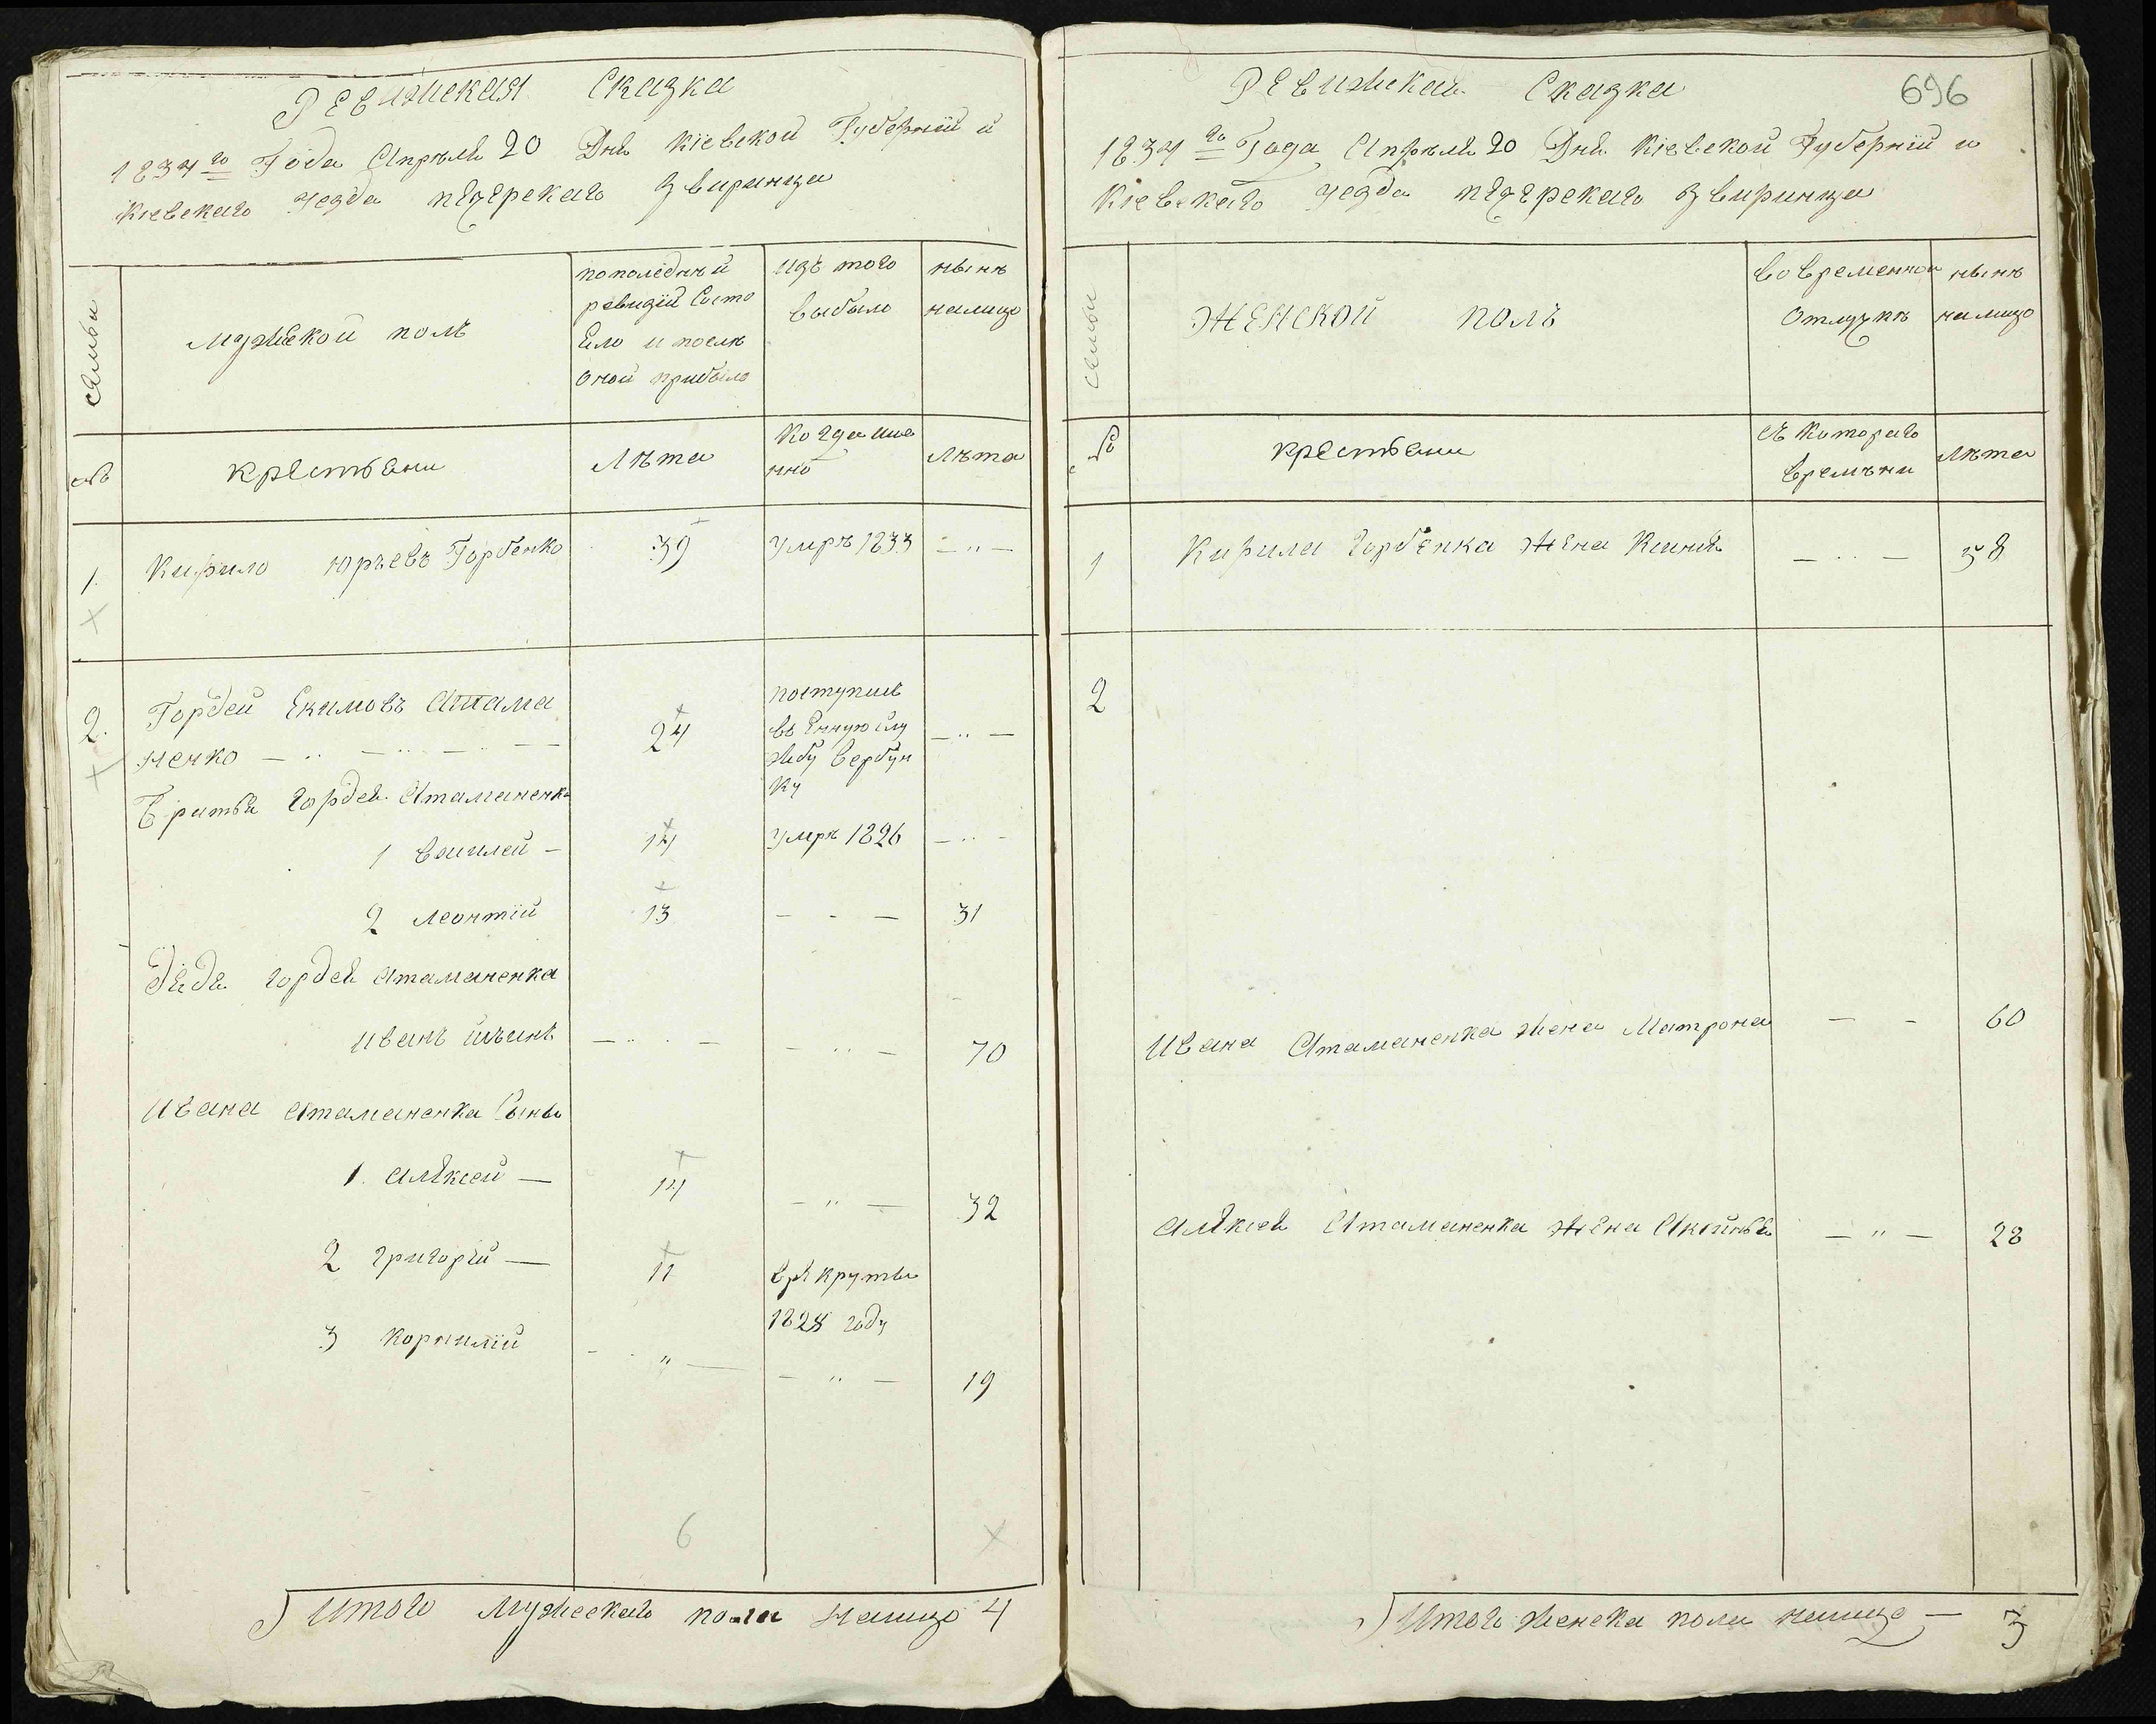 Ревижская Сказка
1834го Года Апреля 20 Дня Кіевской Губерніи и
Кіевскаго уезда печерскаго Звиринца
семьи
мужеской полъ
пополедней
ревизіи Состо
яло и после
оной прибыло
изъ того
выбыло
ныне
налицо
№
крестьяни
Лета
Когда име
нно
Лета
1. Кирило юрьевъ Горбенко 39 умре 1833 — „ —
2. Гордей Екимовъ Атама
ненко — 24
поступив
въ Енную слу
жбу вербун
ку
— „ —
Братья гордея Атаманенка
1 василей — 14 умре 1826 — „ —
2 леонтій 13 — - — 31
Дядя гордея Атаманенка
иванъ — „ — — „ — 70
ивана Атаманенка Сыны
1. алексей — 14 — „ — 32
2 григорій — 11 врекруты
1828 году
3 корнилій — „ — — „ — 19
6
Итого мужескаго пола налицо 4
Ревижская Сказка
696
1834го Года Апреля 20 Дня Кіевской Губерніи и
Кіевскаго уезда печерскаго Звиринца
семьи
женской полъ
вовременной
отлучке
ныне
налицо
№
крестьяни
съ котораго
времени
Лета
1 Кирила горбенка жена — „ — 38
2
ивана Атаманенка жена Матрона — - 60
алексея Атаманенка жена — „ — 28
Итого женска пола налицо — 3